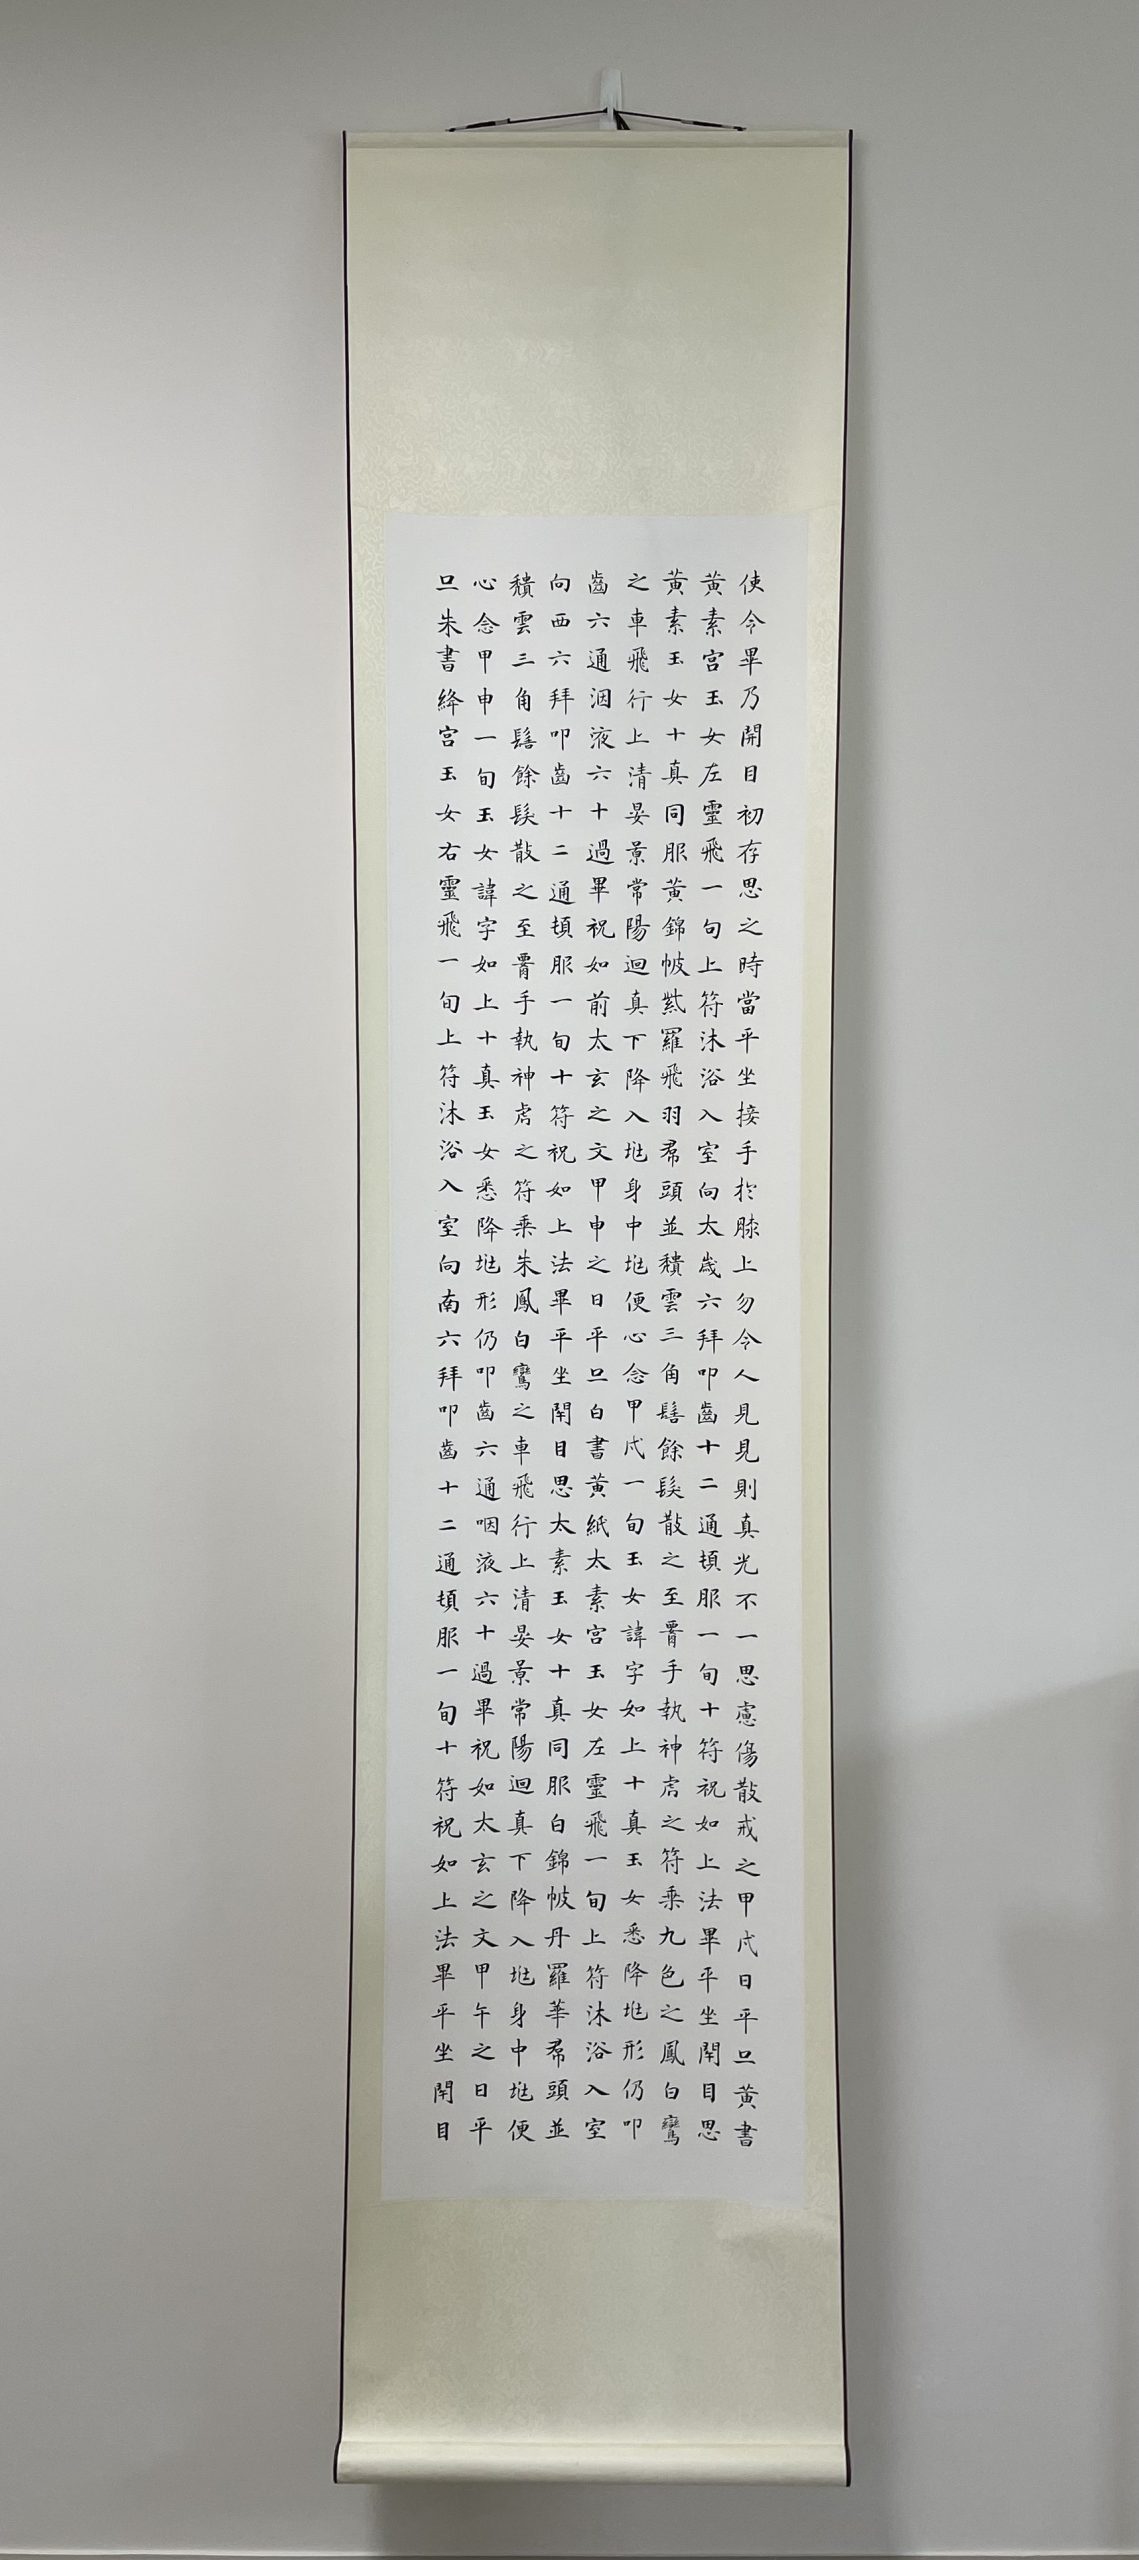 使令畢乃開目初存思之時當平坐接手於膝上勿令人見見則真光不一思慮傷散戒之甲戌日平旦黃書
黃素宮玉女左靈飛一旬上符沐浴入室向太歲六拜叩齒十二通頓服一旬十符祝如上法畢平坐閇目思
黃素玉女十真同服黃錦帔紫羅飛羽帬頭並頹雲三角髻餘髮散之至腰手執神虎之符乘九色之鳳白鸞
之車飛行上清晏景常陽迴真下降入兆身中兆便心念甲戌一旬玉女諱字如上十真玉女悉降兆形仍叩
齒六通咽液六十過畢祝如前太玄之文甲申之日平旦白書黃紙太素宮玉女左靈飛一旬上符沐浴入室
向西六拜叩齒十二通頓服一旬十符祝如上法畢平坐閇目思太素玉女十真同服白錦帔丹羅華帬頭並
頹雲三角髻餘髮散之至腰手執神虎之符乘朱鳳白鸞之車飛行上清晏景常陽迴真下降入兆身中兆便
心念甲申一旬玉女諱字如上十真玉女悉降兆形仍叩齒六通咽液六十過畢祝如太玄之文甲午之日平
旦朱書絳宮玉女右靈飛一旬上符沐浴入室向南六拜叩齒十二通頓服一旬十符祝如上法畢平坐閇目